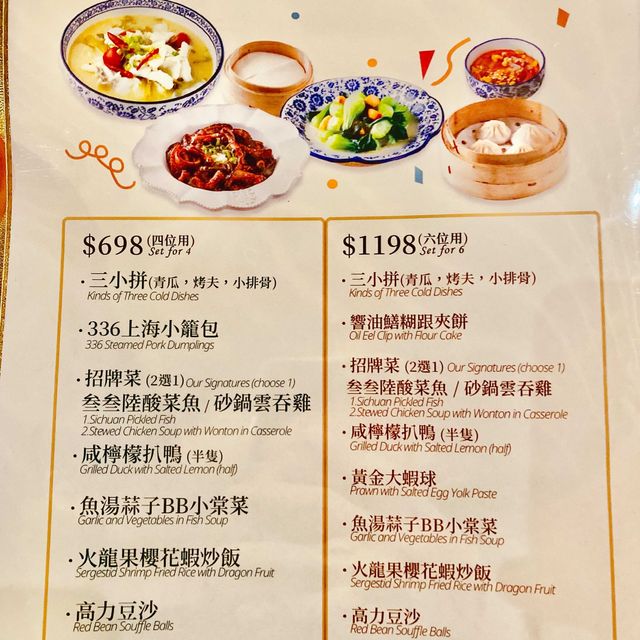 $698 (四位用)
Set for 4
· 三小拼(青瓜，烤夫，小排骨)
Kinds of Three Cold Dishes
· 336上海小籠包
336 Steamed Pork Dumplings
· 招牌菜 (2選1) Our Signatures (choose 1)
叁叁陸酸菜魚 / 砂鍋雲吞雞
1.Sichuan Pickled Fish
2.Stewed Chicken Soup with Wonton in Casserole
· 咸檸檬扒鴨 (半隻)
Grilled Duck with Salted Lemon (half)
· 魚湯蒜子BB小棠菜
Garlic and Vegetables in Fish Soup
· 火龍果櫻花蝦炒飯
Sergestid Shrimp Fried Rice with Dragon Fruit
· 高力豆沙
Red Bean Souffle Balls
$1198 (六位用)
Set for 6
· 三小拼(青瓜，烤夫，小排骨)
Kinds of Three Cold Dishes
· 響油鱔糊跟夾餅
Oil Eel Clip with Flour Cake
· 招牌菜 (2選1) Our Signatures (choose 1)
叁叁陸酸菜魚 / 砂鍋雲吞雞
1.Sichuan Pickled Fish
2.Stewed Chicken Soup with Wonton in Casserole
· 咸檸檬扒鴨 (半隻)
Grilled Duck with Salted Lemon (half)
· 黃金大蝦球
Prawn with Salted Egg Yolk Paste
· 魚湯蒜子BB小棠菜
Garlic and Vegetables in Fish Soup
· 火龍果櫻花蝦炒飯
Sergestid Shrimp Fried Rice with Dragon Fruit
· 高力豆沙
Red Bean Souffle Balls